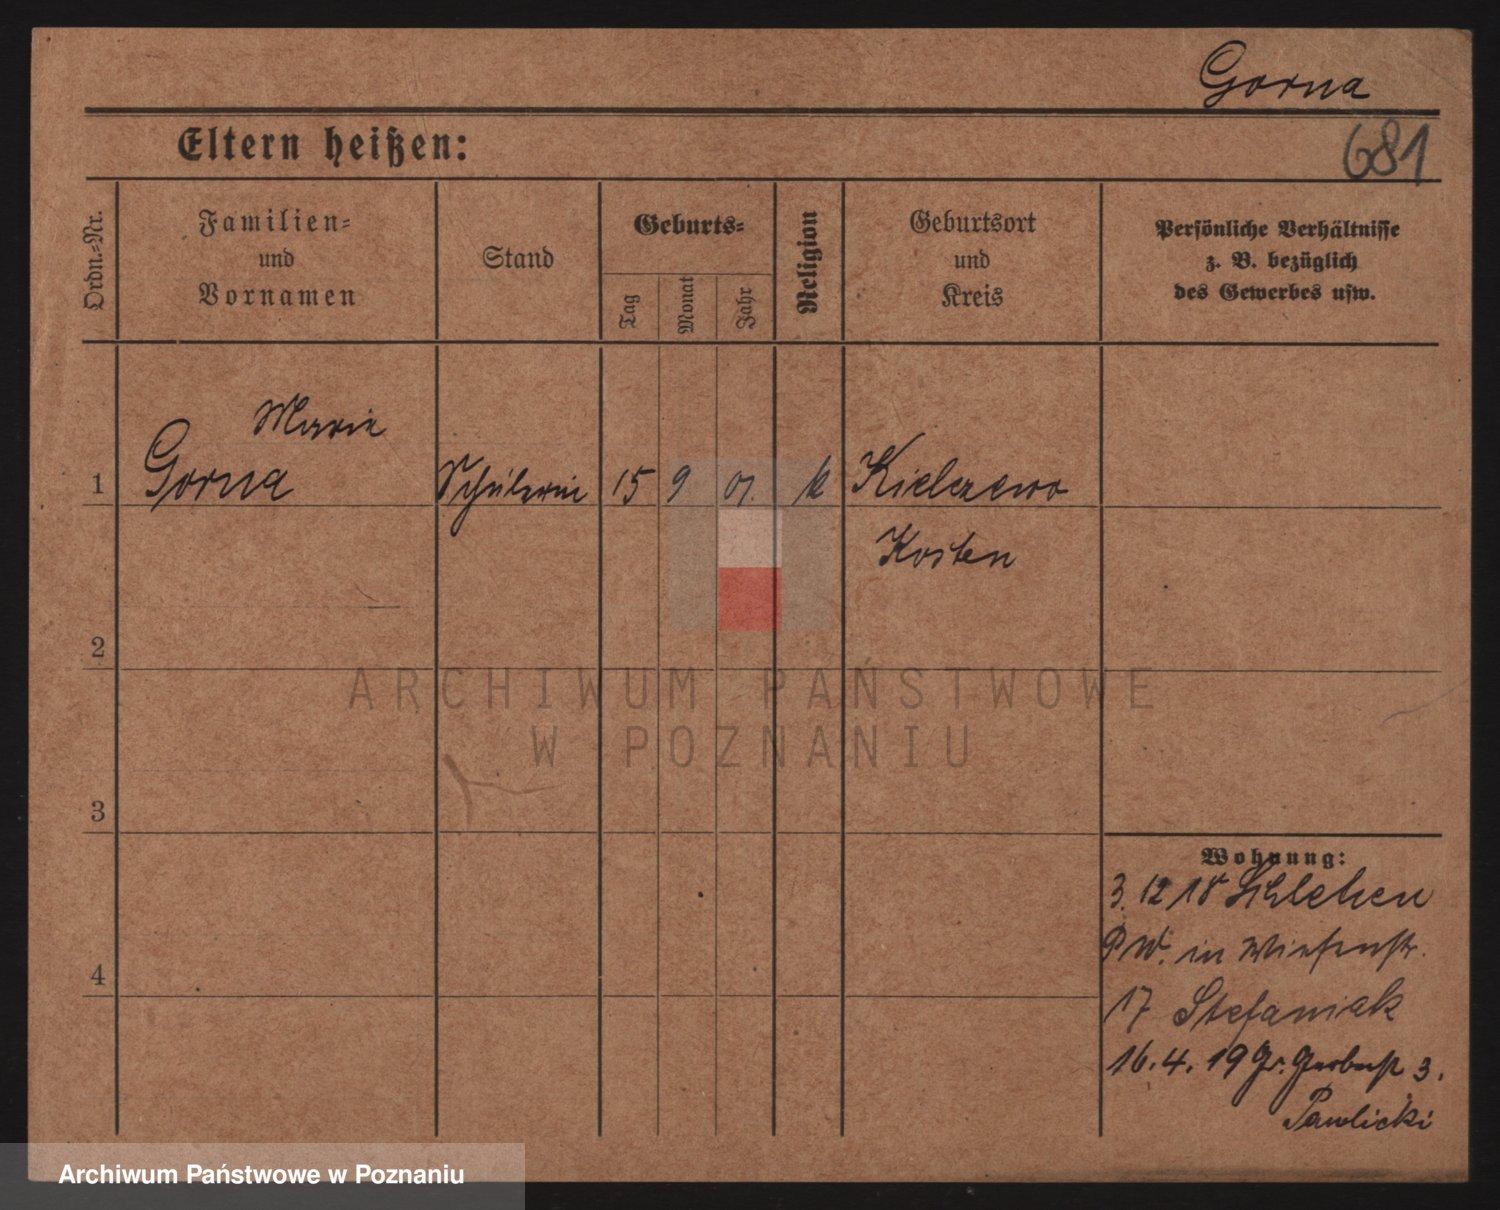 Gorna
681
Eltern heißen:
Ordn.-Nr.
Familien-
und
Vornamen
Stand
Geburts-
Tag
Monat
Jahr
Religion
Geburtsort
und
Kreis
Persönliche Verhältnisse
z. B. bezüglich
des Gewerbes usw.
Marie
1 Gorna Schülerin 15 9 01. k Kielczewo
Kosten
2
3
4
Wohnung:
3. 12 18 Schlehen
P W. in Wiesenstr.
17 Stefaniak
16. 4. 19 Gr. Gerberstr 3.
Pawlicki
ARCHIWUM PAŃSTWOWE
W POZNANIU
Archiwum Państwowe w Poznaniu